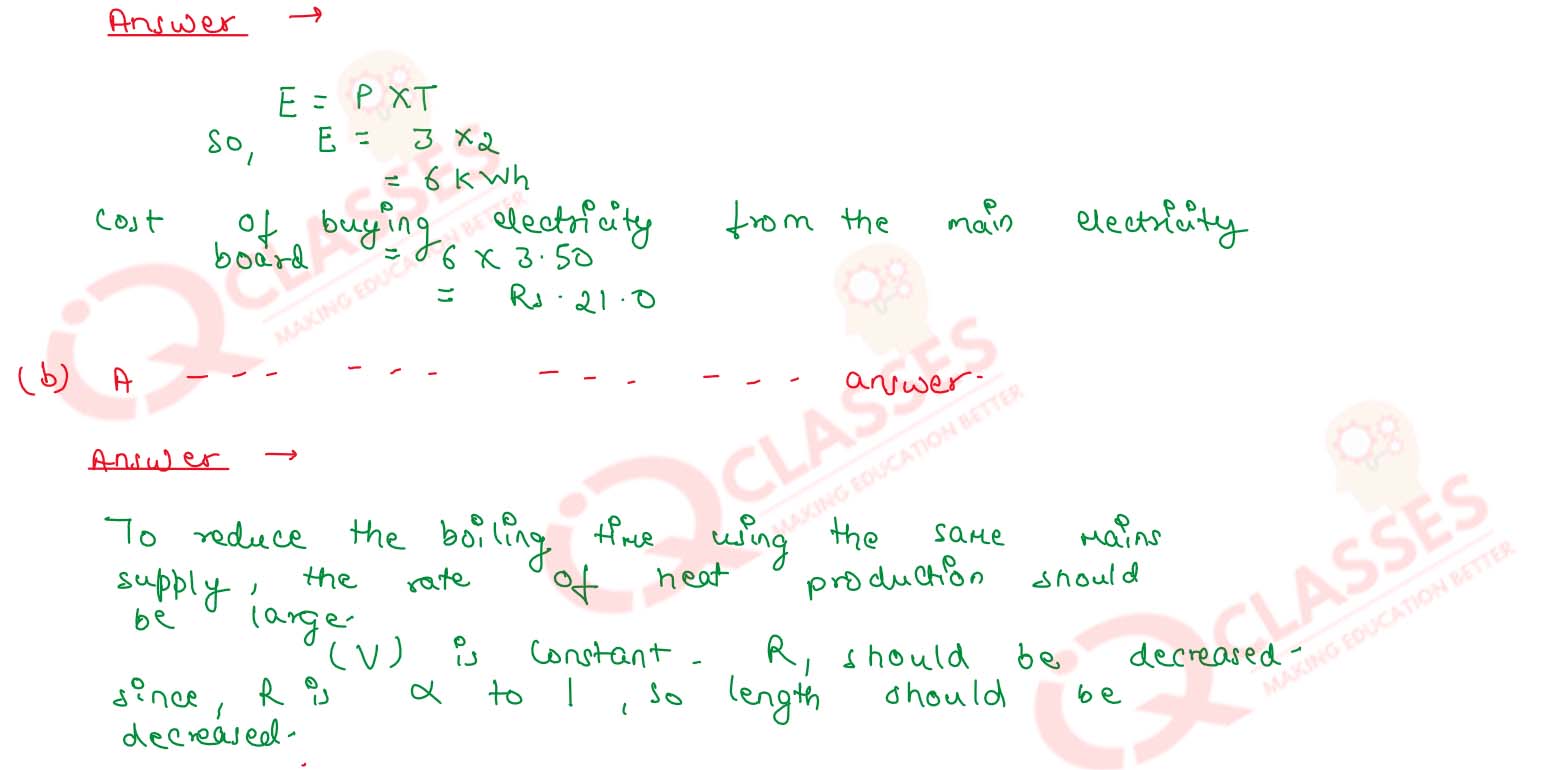 Answer →
E = P X T
So, E = 3 × 2
= 6 KWh
Cost of buying electricity from the main electricity
board = 6 × 3.50
= Rs. 21.0
(b) A - - - - - - - - - - - - answer.
Answer →
To reduce the boiling time using the same mains
supply, the rate of heat production should
be large.
(V) is constant. R, should be decreased.
since, R is α to l, so length should be
decreased.
iQ CLASSES
MAKING EDUCATION BETTER
iQ CLASSES
MAKING EDUCATION BETTER
iQ CLASSES
MAKING EDUCATION BETTER